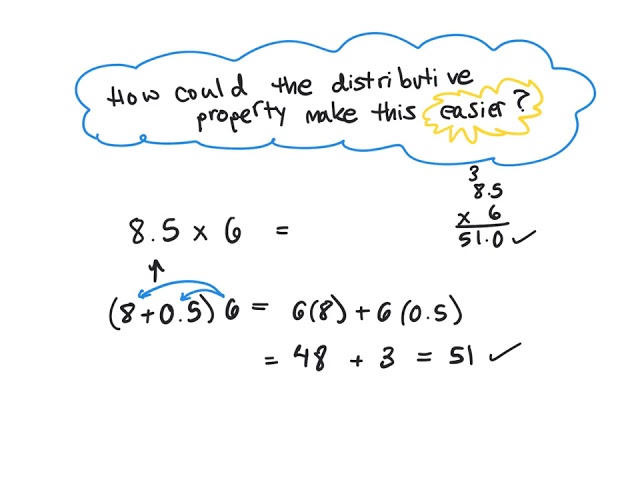 How could the distributive
property make this easier?
3
8.5
x 6
51.0 ✓
8.5 x 6 =
(8+0.5) 6 = 6(8) + 6(0.5)
= 48 + 3 = 51 ✓